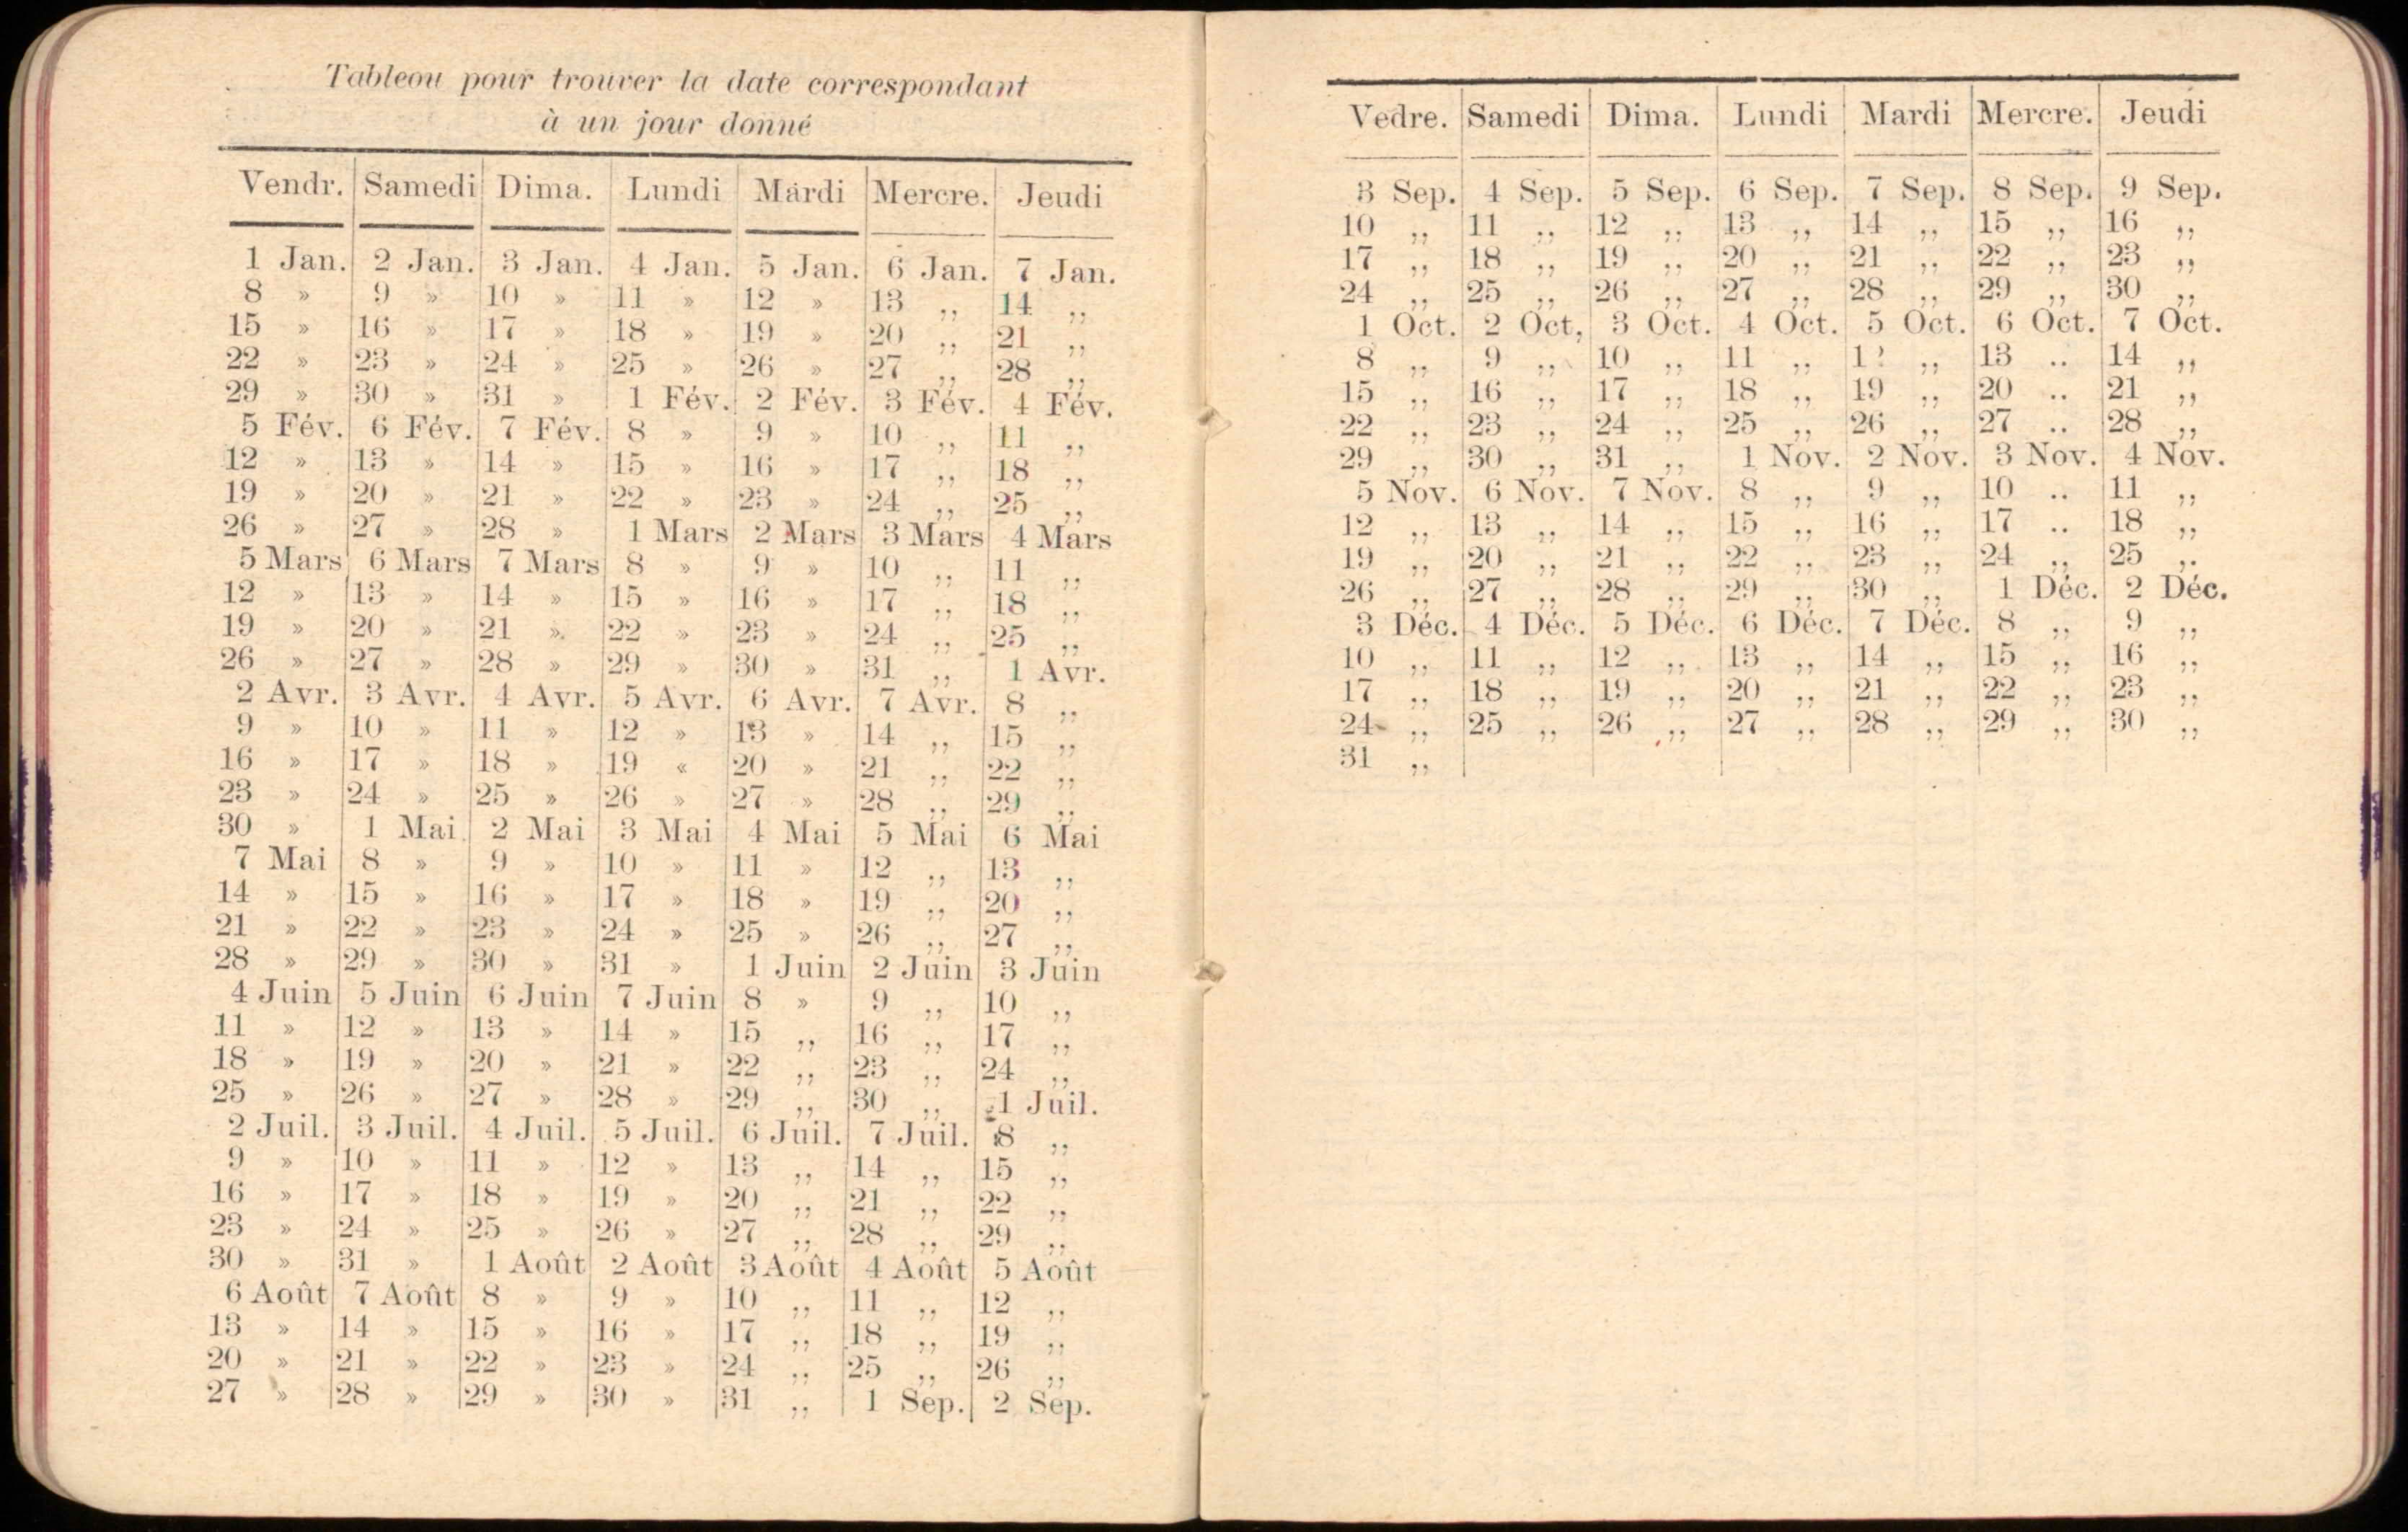 Tableou pour trouver la date correspondant
à un jour donné
Vendr. Samedi Dima. Lundi Mardi Mercre. Jeudi
1 Jan. 2 Jan. 3 Jan. 4 Jan. 5 Jan. 6 Jan. 7 Jan.
8 » 9 » 10 » 11 » 12 » 13 ,, 14 ,,
15 » 16 » 17 » 18 » 19 » 20 ,, 21 ,,
22 » 23 » 24 » 25 » 26 » 27 ,, 28 ,,
29 » 30 » 31 » 1 Fév. 2 Fév. 3 Fév. 4 Fév.
5 Fév. 6 Fév. 7 Fév. 8 » 9 » 10 ,, 11 ,,
12 » 13 » 14 » 15 » 16 » 17 ,, 18 ,,
19 » 20 » 21 » 22 » 23 » 24 ,, 25 ,,
26 » 27 » 28 » 1 Mars 2 Mars 3 Mars 4 Mars
5 Mars 6 Mars 7 Mars 8 » 9 » 10 ,, 11 ,,
12 » 13 » 14 » 15 » 16 » 17 ,, 18 ,,
19 » 20 » 21 » 22 » 23 » 24 ,, 25 ,,
26 » 27 » 28 » 29 » 30 » 31 ,, 1 Avr.
2 Avr. 3 Avr. 4 Avr. 5 Avr. 6 Avr. 7 Avr. 8 ,,
9 » 10 » 11 » 12 » 13 » 14 ,, 15 ,,
16 » 17 » 18 » 19 « 20 » 21 ,, 22 ,,
23 » 24 » 25 » 26 » 27 » 28 ,, 29 ,,
30 » 1 Mai 2 Mai 3 Mai 4 Mai 5 Mai 6 Mai
7 Mai 8 » 9 » 10 » 11 » 12 ,, 13 ,,
14 » 15 » 16 » 17 » 18 » 19 ,, 20 ,,
21 » 22 » 23 » 24 » 25 » 26 ,, 27 ,,
28 » 29 » 30 » 31 » 1 Juin 2 Juin 3 Juin
4 Juin 5 Juin 6 Juin 7 Juin 8 » 9 ,, 10 ,,
11 » 12 » 13 » 14 » 15 ,, 16 ,, 17 ,,
18 » 19 » 20 » 21 » 22 ,, 23 ,, 24 ,,
25 » 26 » 27 » 28 » 29 ,, 30 ,, 1 Juil.
2 Juil. 3 Juil. 4 Juil. 5 Juil. 6 Juil. 7 Juil. 8 ,,
9 » 10 » 11 » 12 » 13 ,, 14 ,, 15 ,,
16 » 17 » 18 » 19 » 20 ,, 21 ,, 22 ,,
23 » 24 » 25 » 26 » 27 ,, 28 ,, 29 ,,
30 » 31 » 1 Août 2 Août 3 Août 4 Août 5 Août
6 Août 7 Août 8 » 9 » 10 ,, 11 ,, 12 ,,
13 » 14 » 15 » 16 » 17 ,, 18 ,, 19 ,,
20 » 21 » 22 » 23 » 24 ,, 25 ,, 26 ,,
27 » 28 » 29 » 30 » 31 ,, 1 Sep. 2 Sep.
Vedre. Samedi Dima. Lundi Mardi Mercre. Jeudi
3 Sep. 4 Sep. 5 Sep. 6 Sep. 7 Sep. 8 Sep. 9 Sep.
10 ,, 11 ,, 12 ,, 13 ,, 14 ,, 15 ,, 16 ,,
17 ,, 18 ,, 19 ,, 20 ,, 21 ,, 22 ,, 23 ,,
24 ,, 25 ,, 26 ,, 27 ,, 28 ,, 29 ,, 30 ,,
1 Oct. 2 Oct, 3 Oct. 4 Oct. 5 Oct. 6 Oct. 7 Oct.
8 ,, 9 ,, 10 ,, 11 ,, 12 ,, 13 .. 14 ,,
15 ,, 16 ,, 17 ,, 18 ,, 19 ,, 20 .. 21 ,,
22 ,, 23 ,, 24 ,, 25 ,, 26 ,, 27 .. 28 ,,
29 ,, 30 ,, 31 ,, 1 Nov. 2 Nov. 3 Nov. 4 Nov.
5 Nov. 6 Nov. 7 Nov. 8 ,, 9 ,, 10 .. 11 ,,
12 ,, 13 ,, 14 ,, 15 ,, 16 ,, 17 .. 18 ,,
19 ,, 20 ,, 21 ,, 22 ,, 23 ,, 24 ,, 25 ,.
26 ,, 27 ,, 28 ,, 29 ,, 30 ,, 1 Déc. 2 Déc.
3 Déc. 4 Déc. 5 Déc. 6 Déc. 7 Déc. 8 ,, 9 ,,
10 ,, 11 ,, 12 ,, 13 ,, 14 ,, 15 ,, 16 ,,
17 ,, 18 ,, 19 ,, 20 ,, 21 ,, 22 ,, 23 ,,
24 ,, 25 ,, 26 ,, 27 ,, 28 ,, 29 ,, 30 ,,
31 ,,